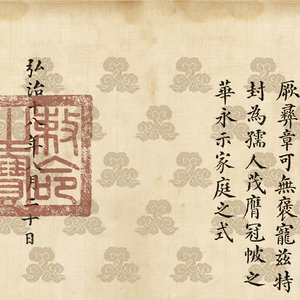 厥彝章可無褒寵兹特
封為孺人茂膺冠帔之
華永示家庭之式
弘治十八年八月二十日
敕命之寶